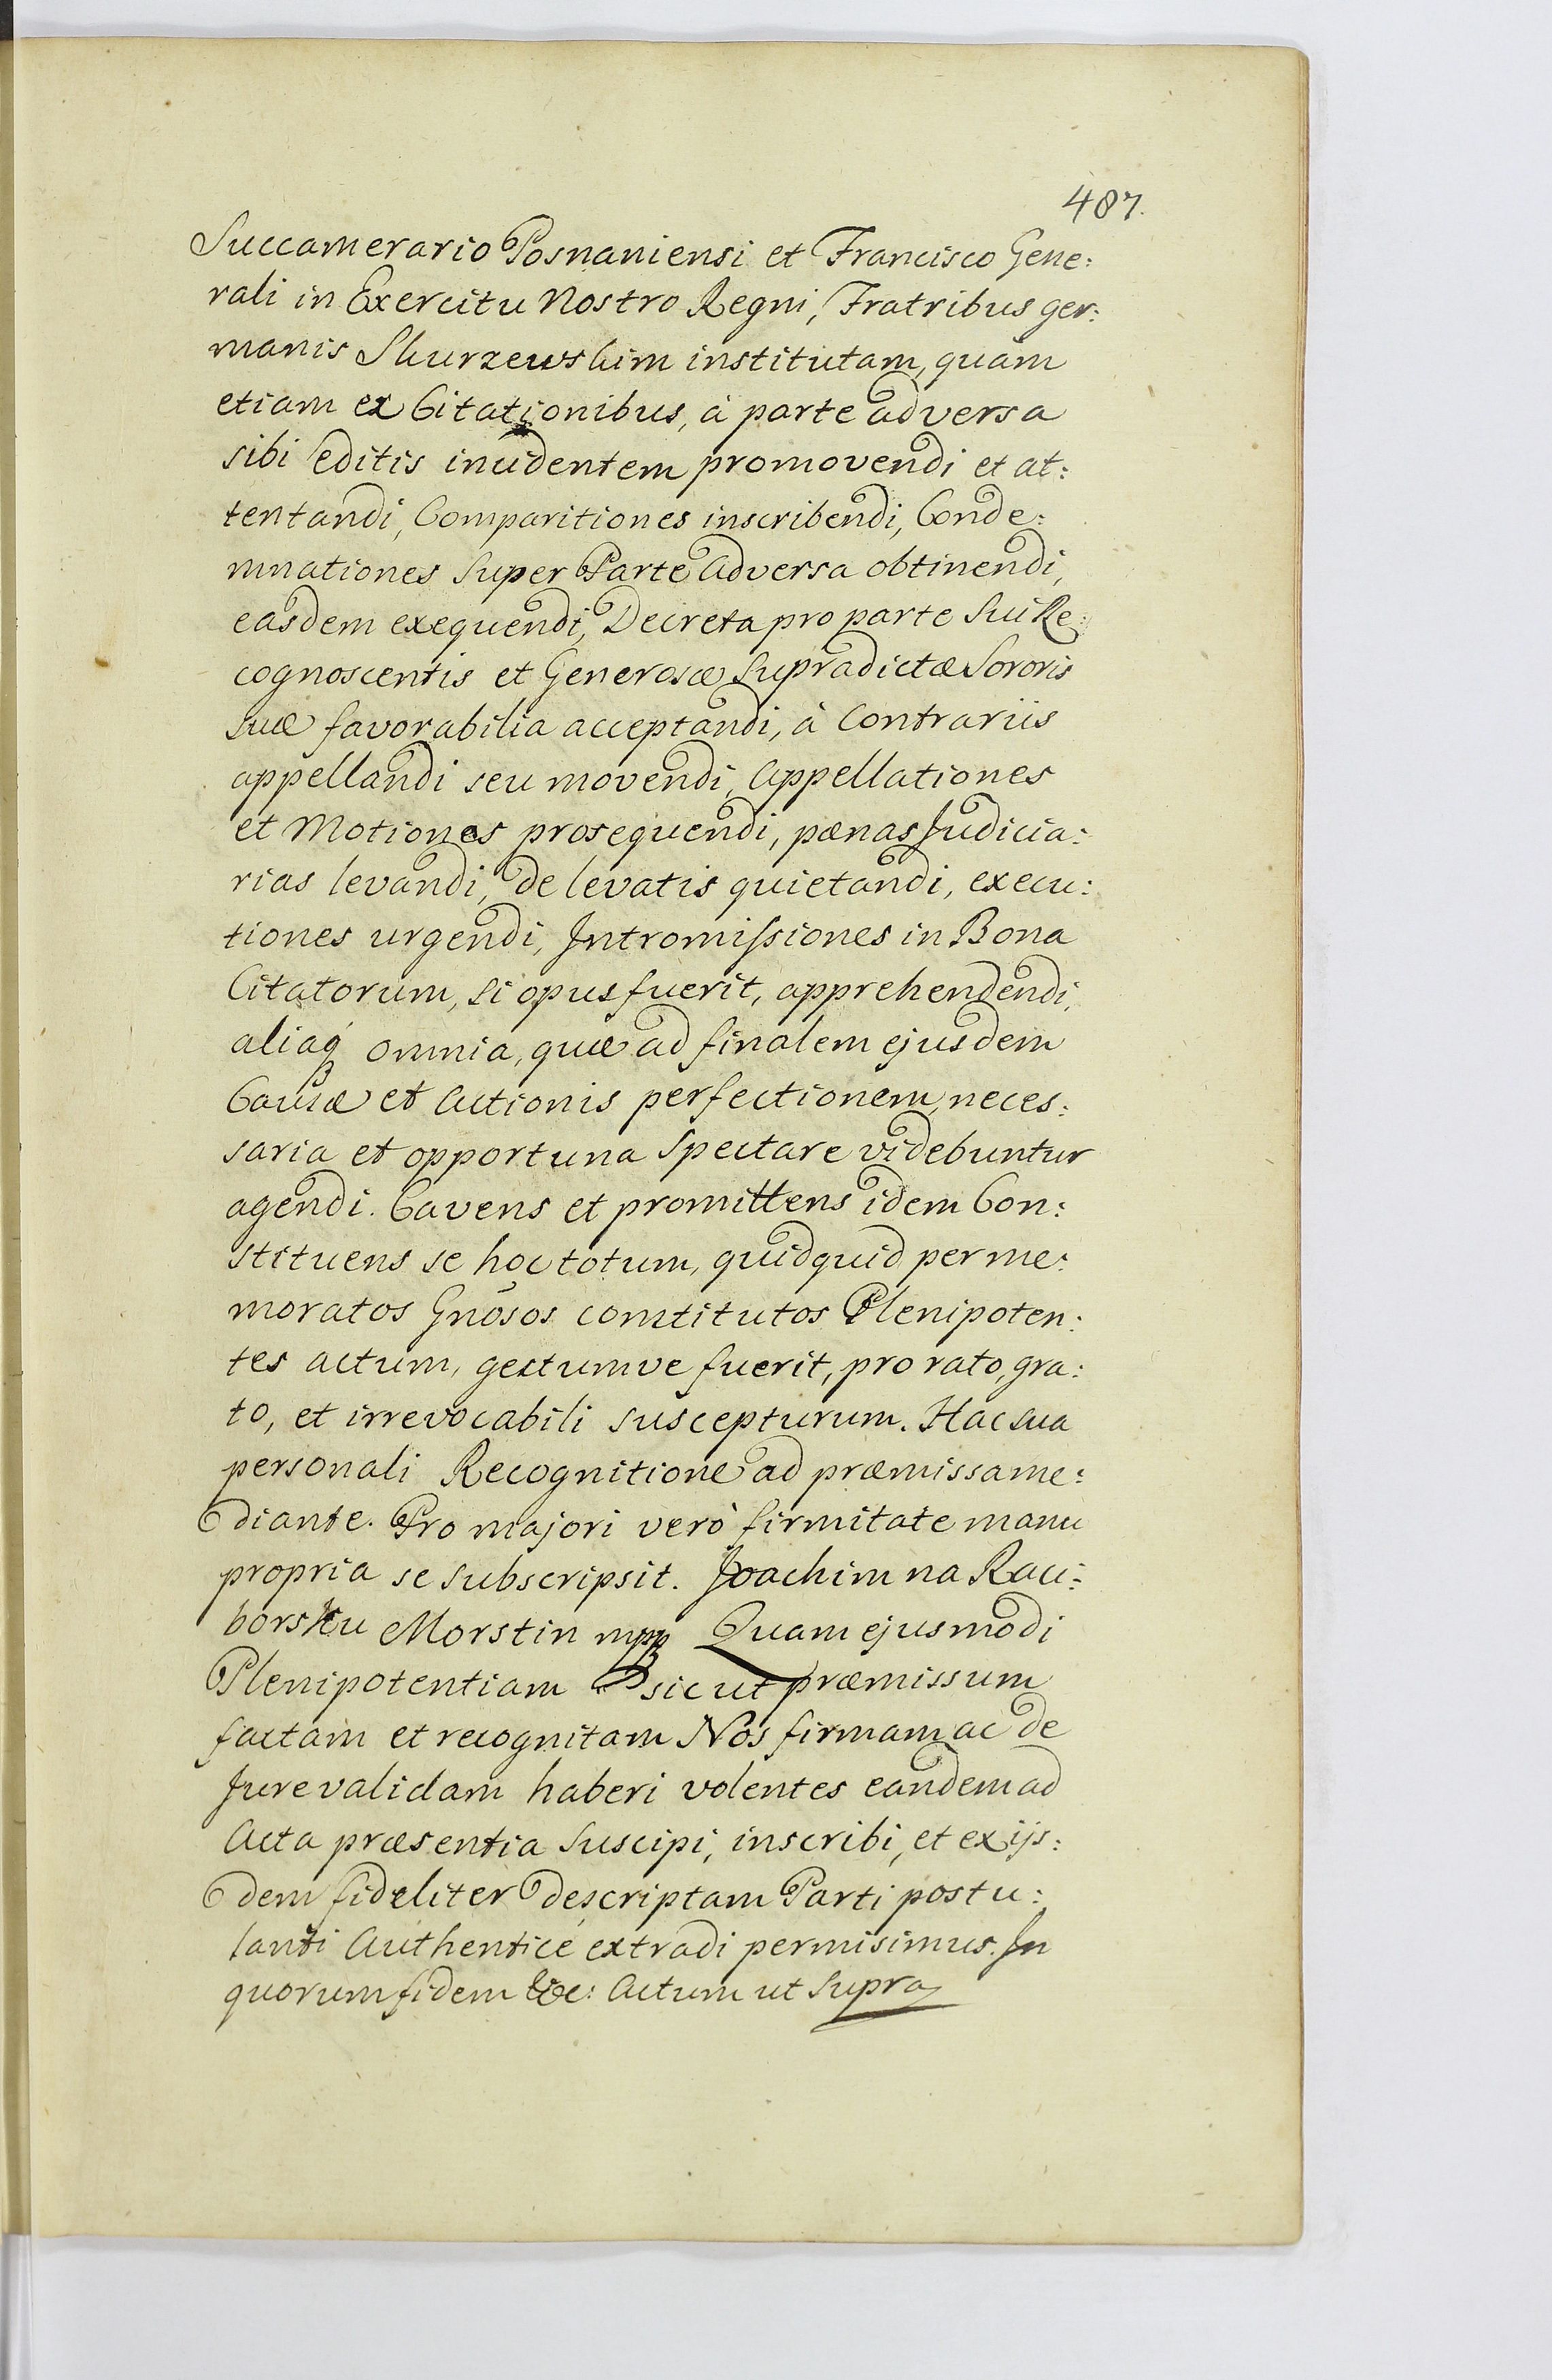 487.
Succamerario Posnaniensi et Francisco Gene:
rali in Exercitu Nostro Regni, Fratribus ger:
manis Skurzewskim institutam, quàm
etiam ex Citationibus, à parte adversa
sibi editis incidentem promovendi et at:
tentandi, Comparitiones inscribendi, Conde:
mnationes super Parte Adversa obtinendi,
easdem exequendi, Decreta pro parte Sui Re:
cognoscentis et Generosæ Supradictæ Sororis
suæ favorabilia acceptandi, à Contrariis
appellandi seu movendi, Appellationes
et Motiones prosequendi, pænas Judicia:
rias levandi, de levatis quietandi, execu:
tiones urgendi, Intromissiones in Bona
Citatorum, si opus fuerit, apprehendendi,
aliaq omnia, quæ ad finalem ejusdem
Causæ et Actionis perfectionem neces:
saria et opportuna Spectare videbuntur
agendi. Cavens et promittens idem Con:
stituens se hoc totum, quidquid per me:
moratos Gnosos constitutos Plenipoten:
tes actum, gestumve fuerit, pro rato, gra:
to, et irrevocabili suscepturum. Hac sua
personali Recognitione ad præmissa me:
diante. Pro majori verò firmitate manu
propria se subscripsit. Joachim na Raci:
borsku Morstin mpp Quam ejusmodi
Plenipotentiam sic ut præmissum
factam et recognitam Nos firmam ac de
Jure validam haberi volentes eandem ad
Acta præsentia Suscipi, inscribi, et ex ijs:
dem fideliter descriptam Parti postu:
lanti Authenticè extradi permisimus. In
quorum fidem &c: Actum ut Supra